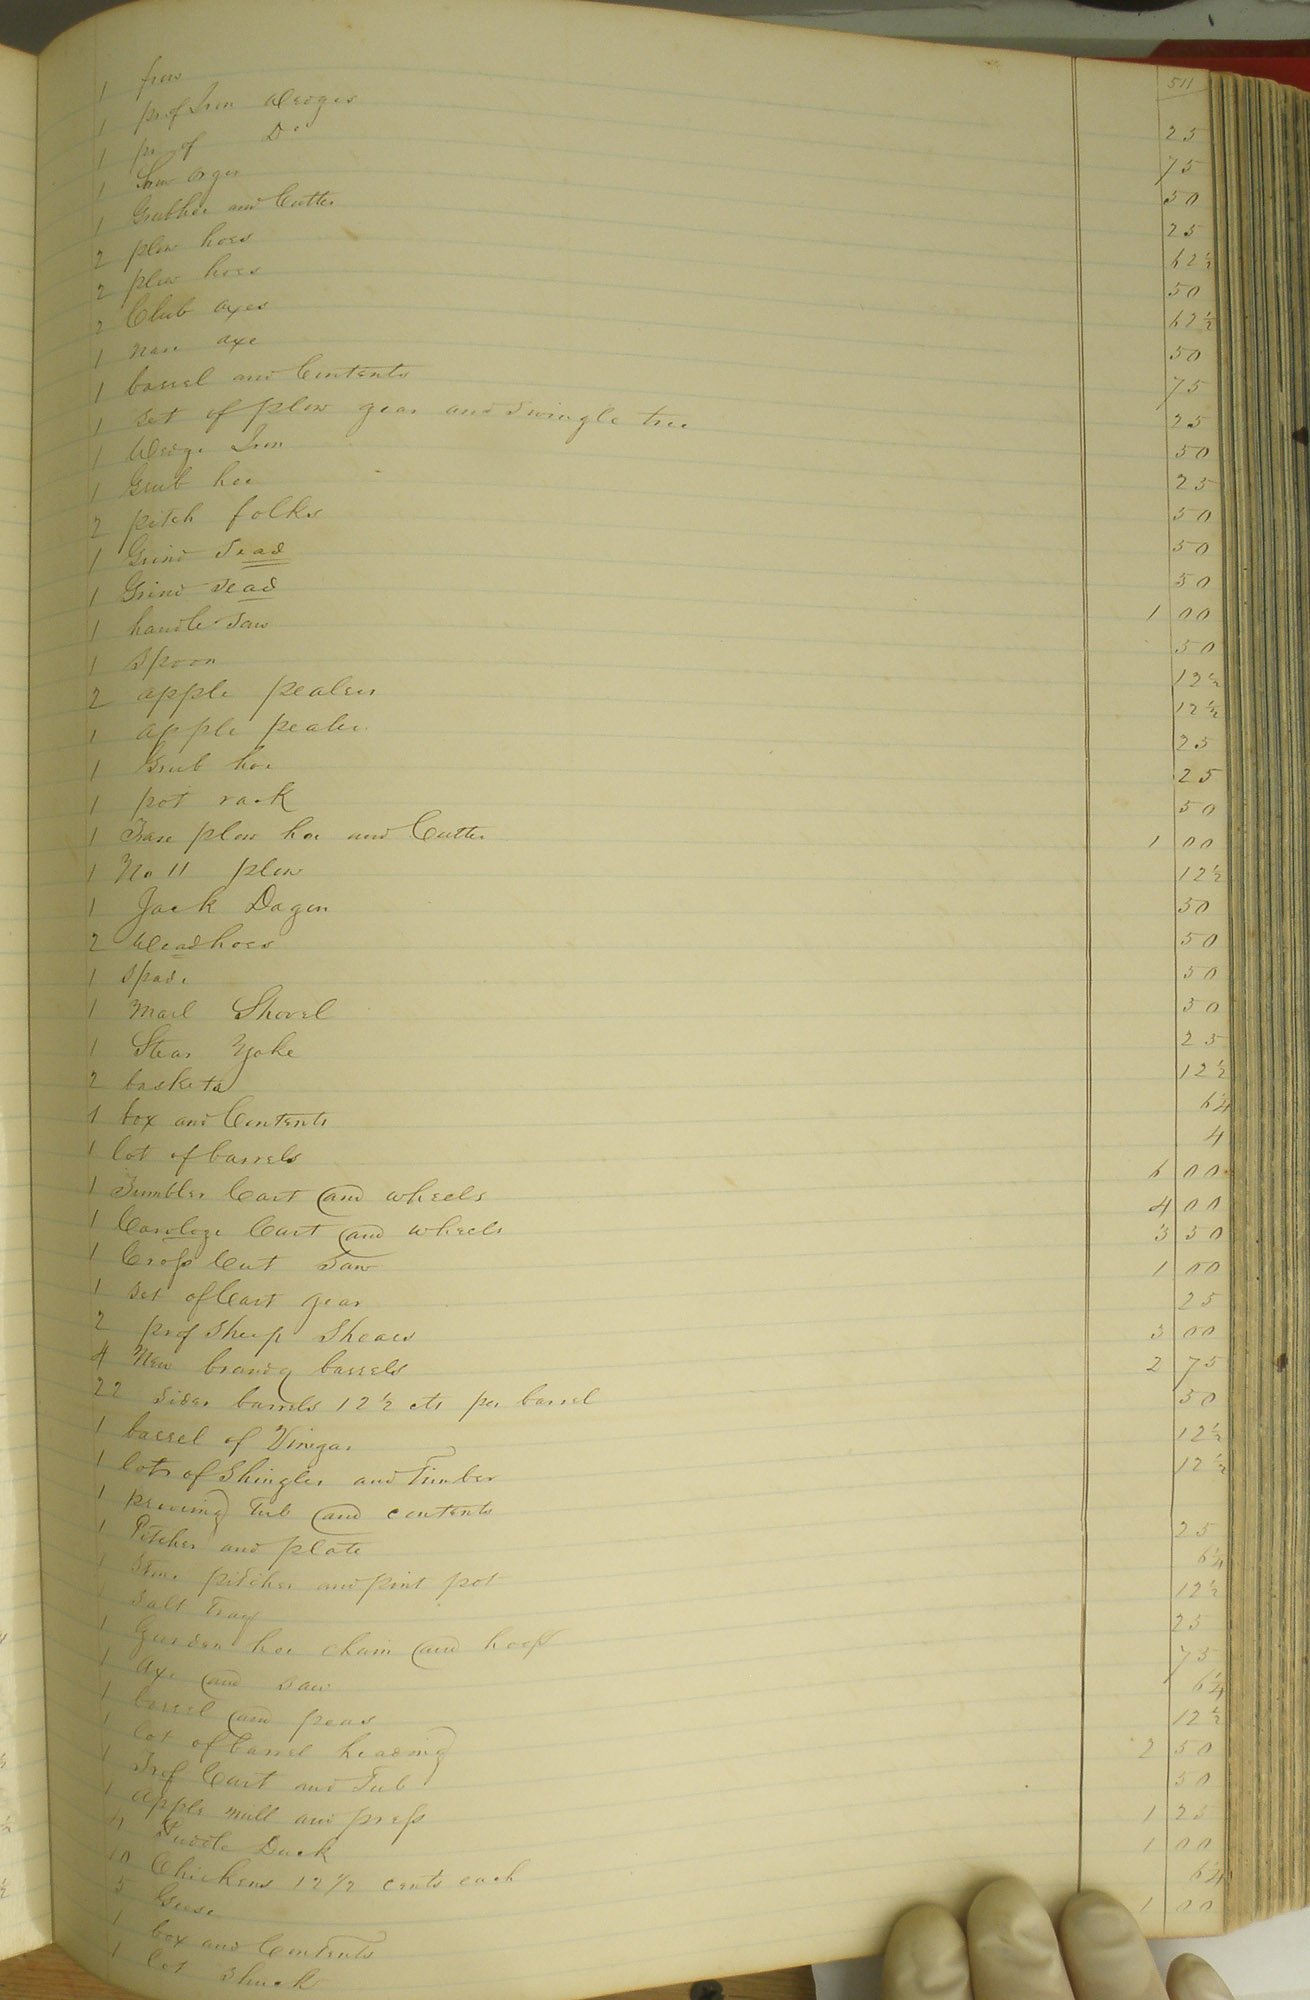 511
1 frow 25
1 pr of Iron Wedges 75
1 pr of Do 50
1 Orger 25
1 Grubhoe and Cutter 62½
2 plow hoes 50
2 plow hoes 62½
2 Club axes 50
1 nare axe 75
1 barrel and Contents 25
1 set of plow gear and swingle tree 50
1 Wedge Iron 25
1 Grub hoe 50
2 pitch folks 50
1 Grind stad 50
1 Grind stad 1 00
1 handle saw 50
1 spoon 12½
2 apple pealers 12½
1 apple pealer 25
1 Grub hoe 25
1 pot rack 50
1 Fare plow hoe and Cutter 1 00
1 No 11 plow 12½
1 Jack Dagen 50
2 Weadhoes 50
1 spade 50
1 Marl Shovel 50
1 Stear Yoke 25
2 baskets 12½
1 box and Contents 6¼
1 lot of barrels 4
1 Tumbler Cart and wheels 6 00
1 Carologe Cart and wheels 4 00
1 Cross Cut Saw 3 50
1 set of Cart gear 1 00
2 pr of sheep Shears 25
4 New brandy barrels 3 00
22 Sider barrels 12½ cts per barrel 2 75
1 barrel of Vinegar 50
1 lots of Shingles and Timber 12½
1 Tub and contents 12½
1 Pitcher and plate
1 Stone pitcher and pint pot 25
1 Salt Tray 6¼
1 Garden hoe chain and hoop 12½
1 Axe and saw 25
1 barrel and peas 75
1 lot of barrel heading 6¼
1 Cart and Tub 12½
1 Apple mill and press 2 50
4 Puddle Duck 50
10 Chickens 12½ cents each 1 25
5 Geese 1 00
1 box and Contents 6¼
1 lot Shuck 1 00